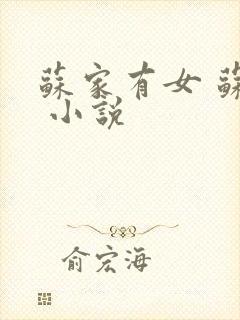 蘇家有女 蘇
小説
俞宏海